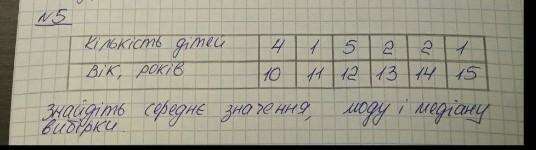 №5
Кількість дітей 4 1 5 2 2 1
Вік, років 10 11 12 13 14 15
Знайдіть середнє значення, моду і медіану
вибірки.